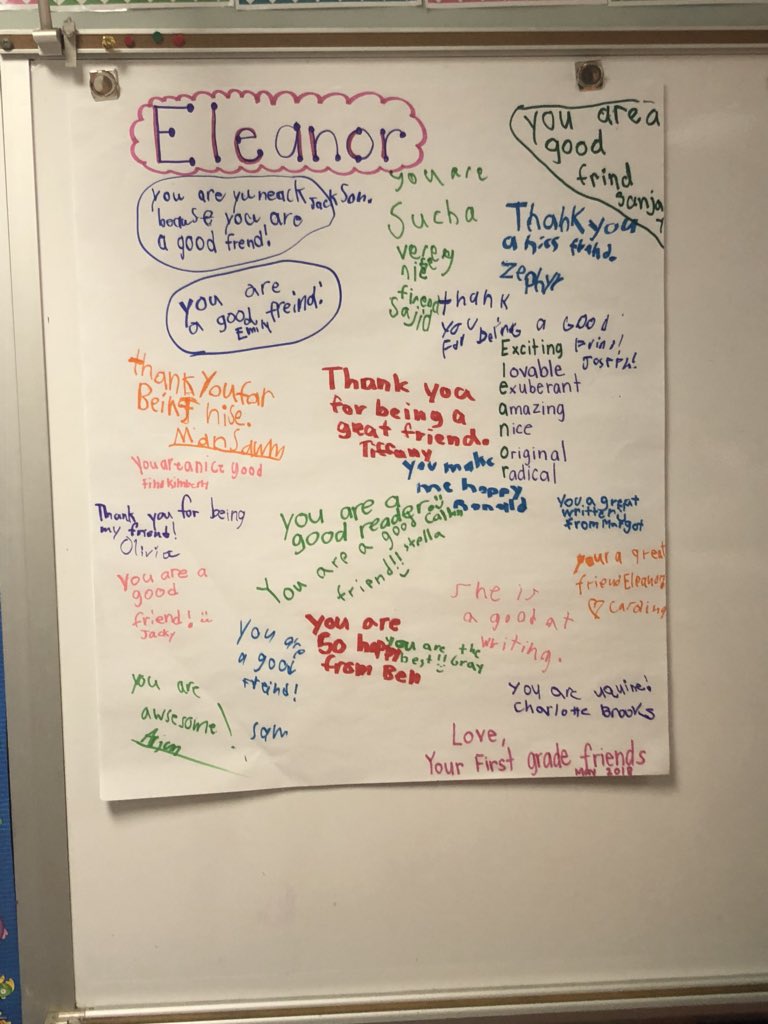 Eleanor
you are yuneack Jackson.
because you are
a good frend!
you are
Sucha
verey
nie
firend
Sajid
you are a
good
frind
Sanja
Thank you
a nise frind.
Zephyr
you are
a good freind!
Emily
thank
you
For being a Good
frind!
Joseph!
Exciting
lovable
exuberant
amazing
nice
original
radical
thank You far
Being nise.
Thank you
for being a
great friend.
Tiffany
you make
me happy
Ronald
You are a nice good
find Kimberly
Thank you for being
my friend!
Olivia
You are a
good reader
You are a good
friend!! Stella
You a great
writter!
from Margot
your a great
friend Eleanor
You are a
good
friend!
Jacky
She is
a good at
writing.
you are
So happy
from Ben
You are the
best!! Gray
You are
a good
freind!
Sam
you are
awsesome!
you are uquine!
Charlotte Brooks
Love,
Your First grade friends
May 2018